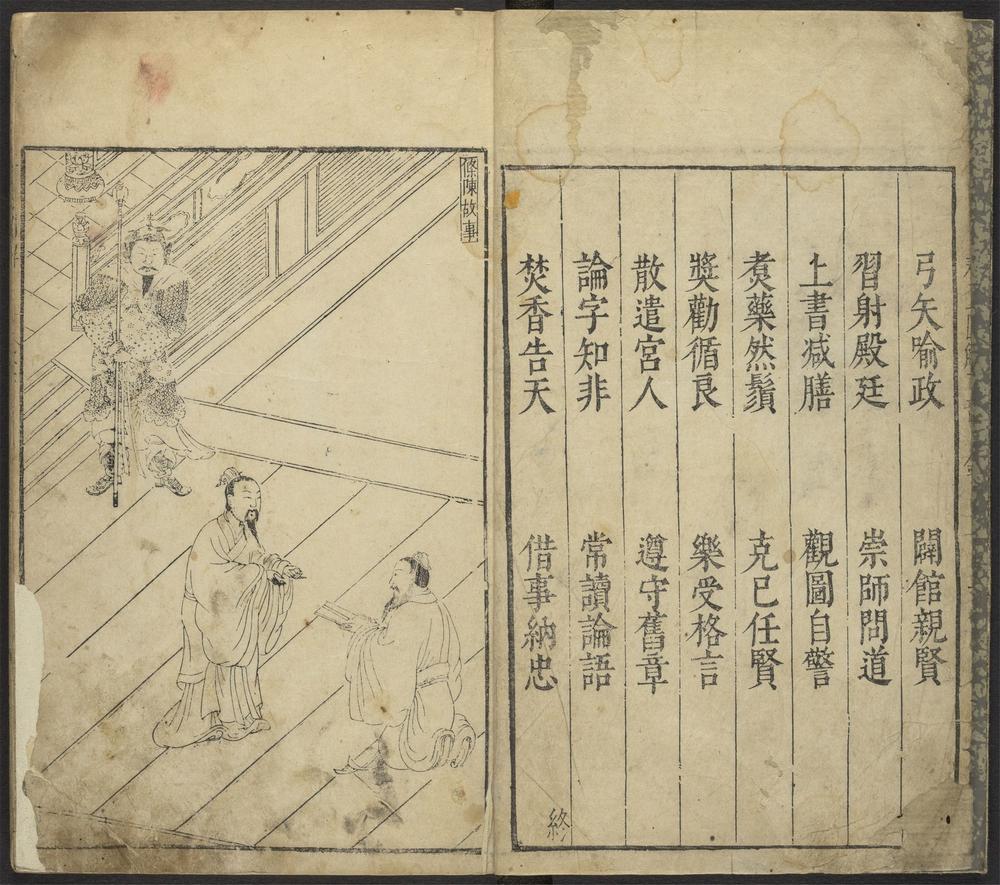 弓矢喻政　開館親賢
習射殿廷　崇師問道
上書減膳　觀圖自警
煑藥然鬚　克己任賢
奬勸循良　樂受格言
散遣宮人　遵守舊章
論字知非　常讀論語
焚香告天　借事納忠
終
條陳故事